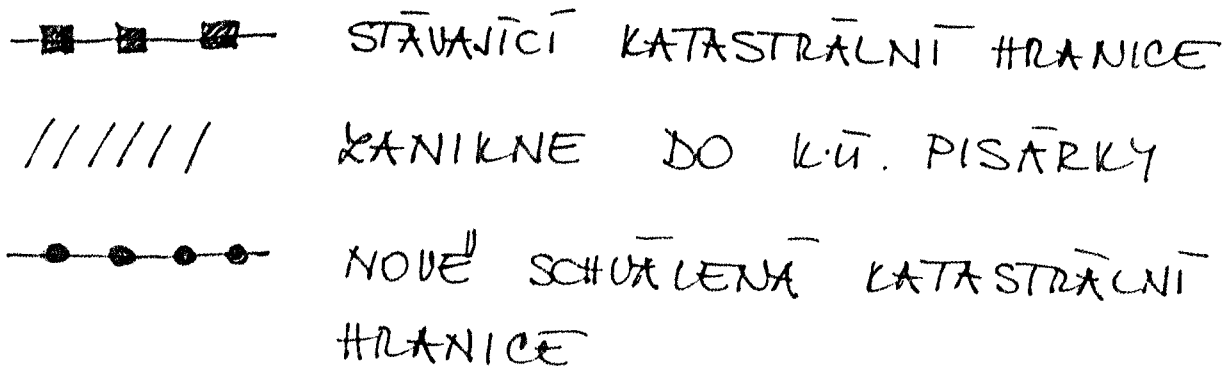 STÁVAJÍCÍ KATASTRÁLNÍ HRANICE
ZANIKNE DO K.Ú. PISÁRKY
NOVĚ SCHVÁLENÁ KATASTRÁLNÍ
HRANICE